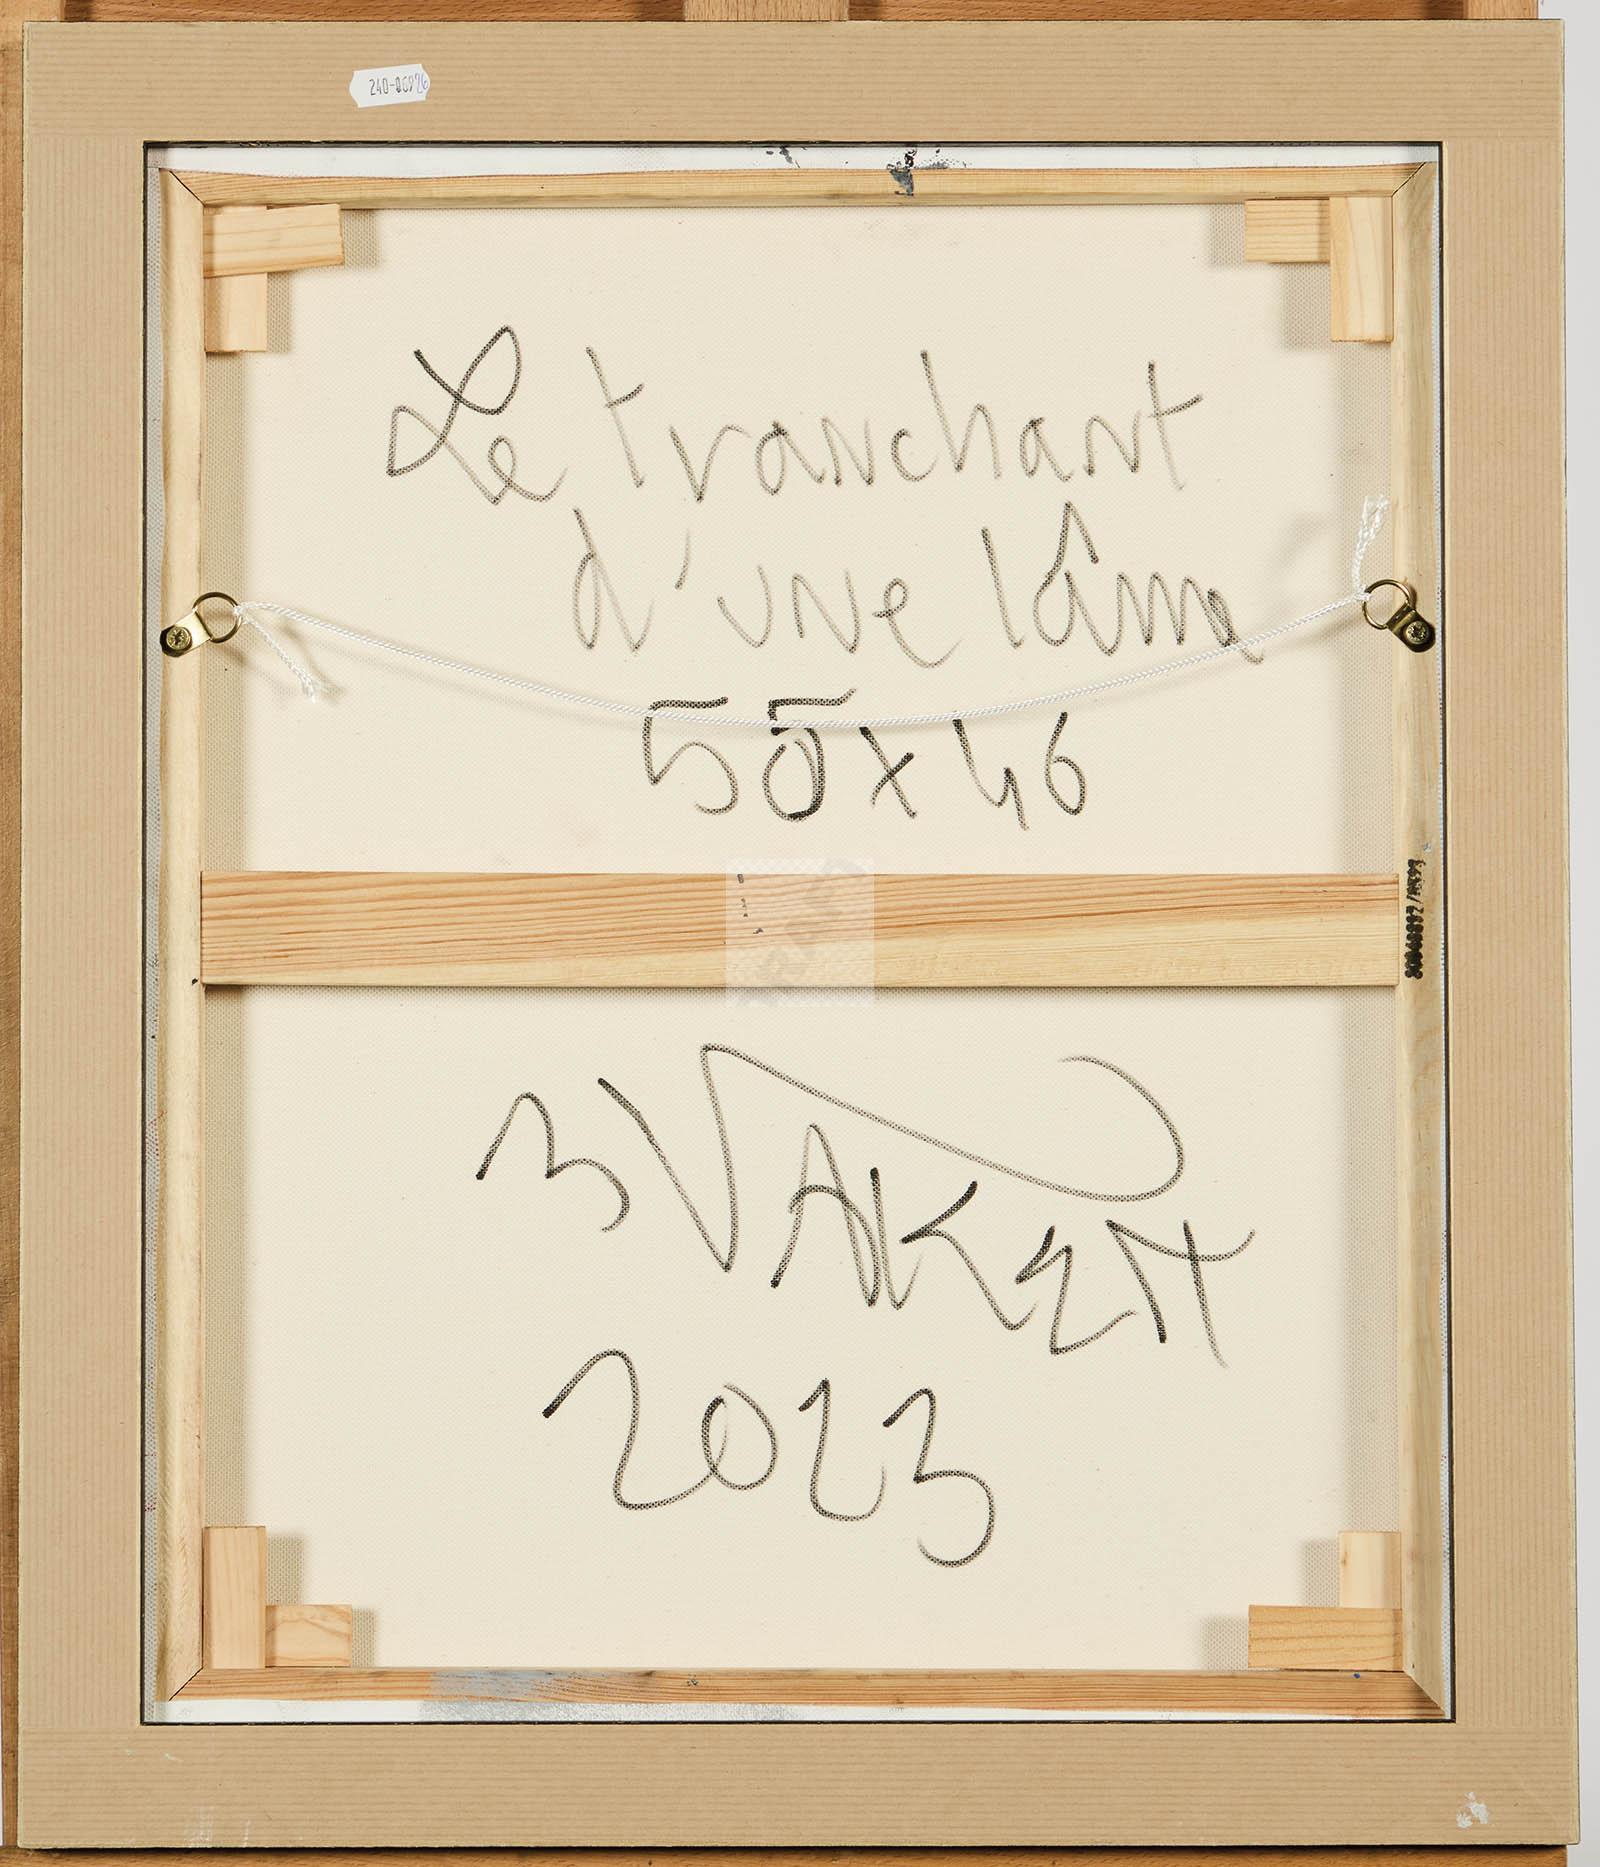 240-06926
Le tranchant
d'une lâme
55x46
3 VAKENT
2023